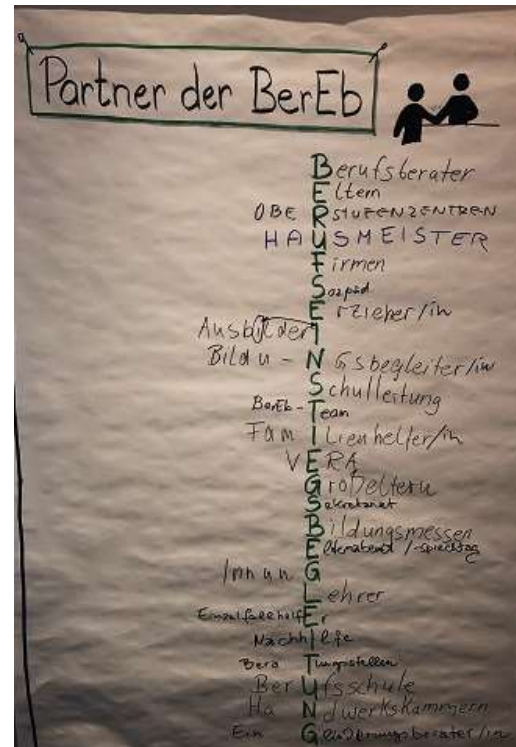 Partner der BerEb
Berufsberater
Eltern
OBERSTUFENZENTREN
HAUSMEISTER
Firmen
Sozpäd
Erzieher/in
Ausbilder
Bildu-NGsbegleiter/in
Schulleitung
BerEb-Team
Familienhelfer/in
VERA
Großeltern
Sekretariat
Bildungsmessen
Elternabend/-sprechtag
Innung
Lehrer
Einzelfallhelfer
Nachhilfe
BeraTungsstellen
Berufsschule
Handwerkskammern
EinGliederungsberater/in